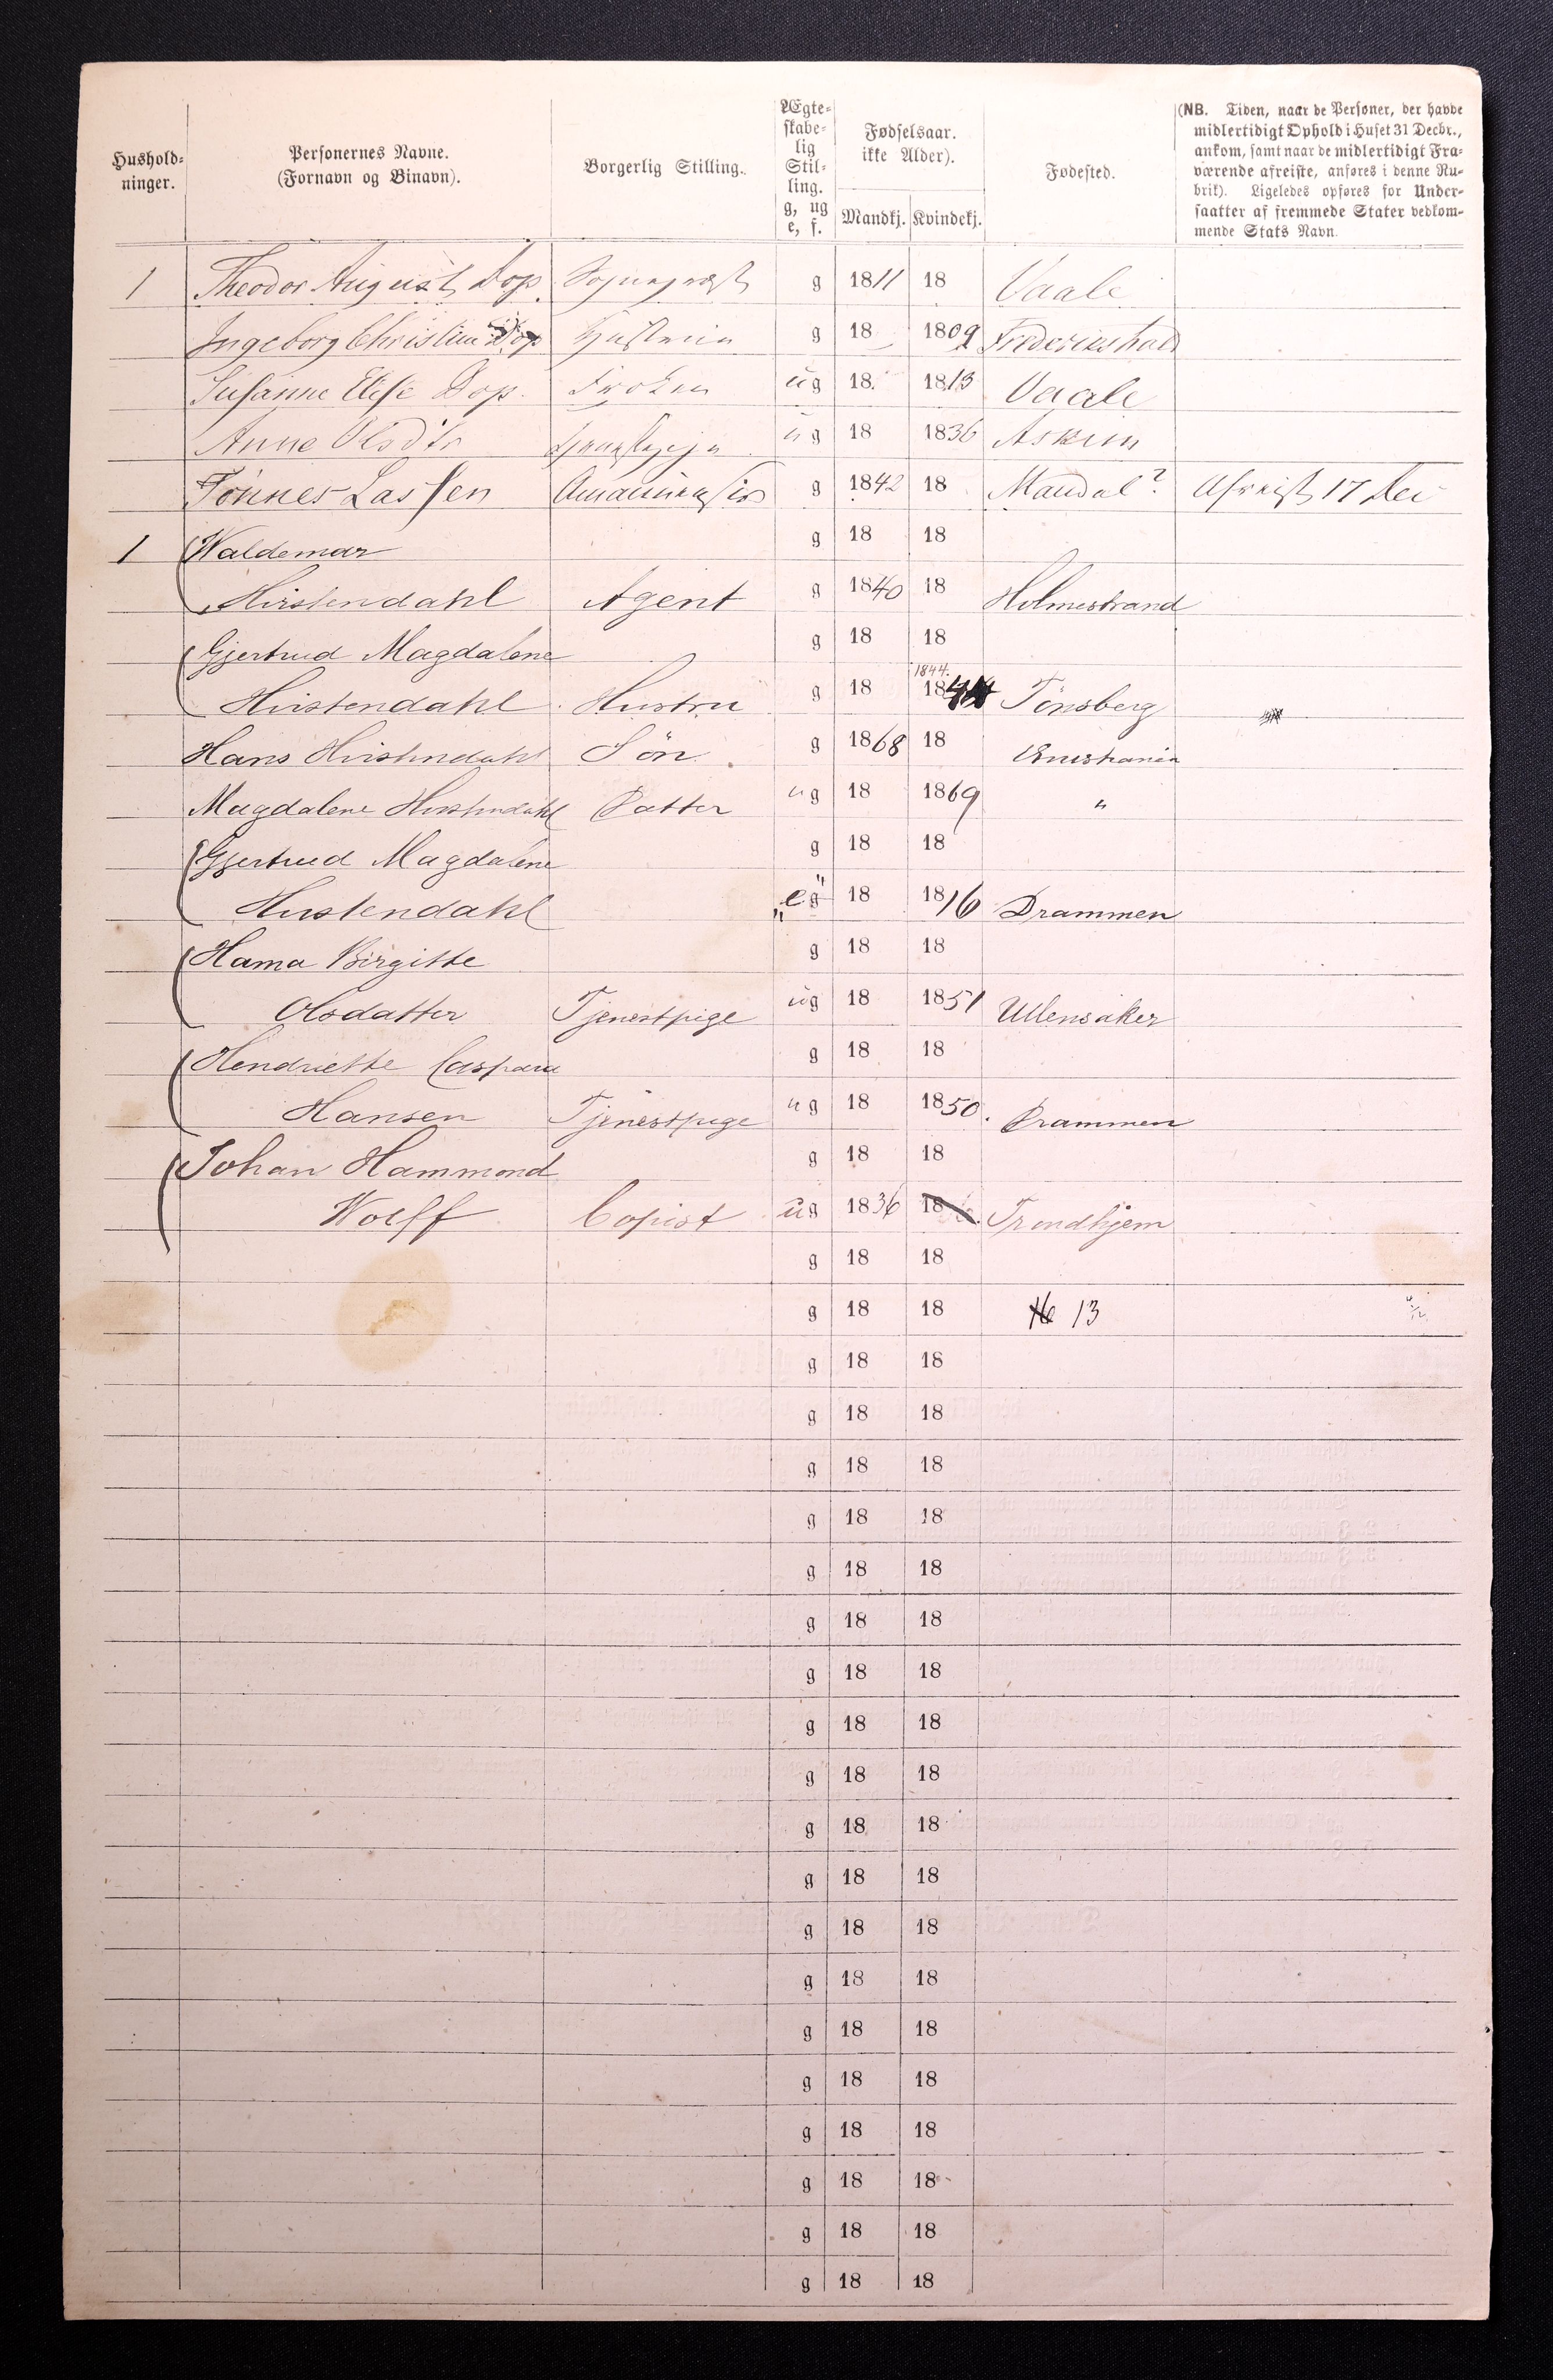 Hushold-
ninger.
Personernes Navne.
(Fornavn og Binavn).
Borgerlig Stilling.
Ægte-
skabe-
lig
Stil-
ling.
g, ug
e, f.
Fødselsaar.
ikke Alder).
Mandkj. Kvindekj.
Fødested.
(NB. Tiden, naar de Personer, der havde
midlertidigt Ophold i Huset 31 Decbr.,
ankom, samt naar de midlertidigt Fra-
værende afreiste, anføres i denne Ru-
brik). Ligeledes opføres for Under-
saatter af fremmede Stater vedkom-
mende Stats Navn.
1 Theodor August Dop Sognepræst g 1811 18 Vaale
Ingeborg Christine Dop Hustru g 18 1809 Frederikshald
Susanne Elise Dop. Frøken ug 18 1813 Vaale
Anne Olsdtr Tjenestepige ug 18 1836 Askim
Tönnes Lassen g 1842 18 Mandal? Afreist 17 Dec
1 Waldemar g 18 18
Hirstendahl Agent g 1840 18 Holmestrand
Gjertrud Magdalene g 18 18
1844.
Hirstendahl Hustru g 18 1844 Tönsberg
Hans Hirstendahl Sön. g 1868 18 Christiania
Magdalene Hirstendahl Datter ug 18 1869 "
Gjertrud Magdalene g 18 18
Hirstendahl "eg" 18 1816 Drammen
Hama Birgitte g 18 18
Olsdatter Tjenestpige ug 18 1851 Ullensaker
Hendriette Caspara g 18 18
Hansen Tjenestpige ug 18 1850. Drammen
Johan Hammond g 18 18
Wolff Copist ug 1836 18 Trondhjem
g 18 18
g 18 18 16 13
g 18 18
g 18 18
g 18 18
g 18 18
g 18 18
g 18 18
g 18 18
g 18 18
g 18 18
g 18 18
g 18 18
g 18 18
g 18 18
g 18 18
g 18 18
g 18 18
g 18 18
g 18 18
g 18 18